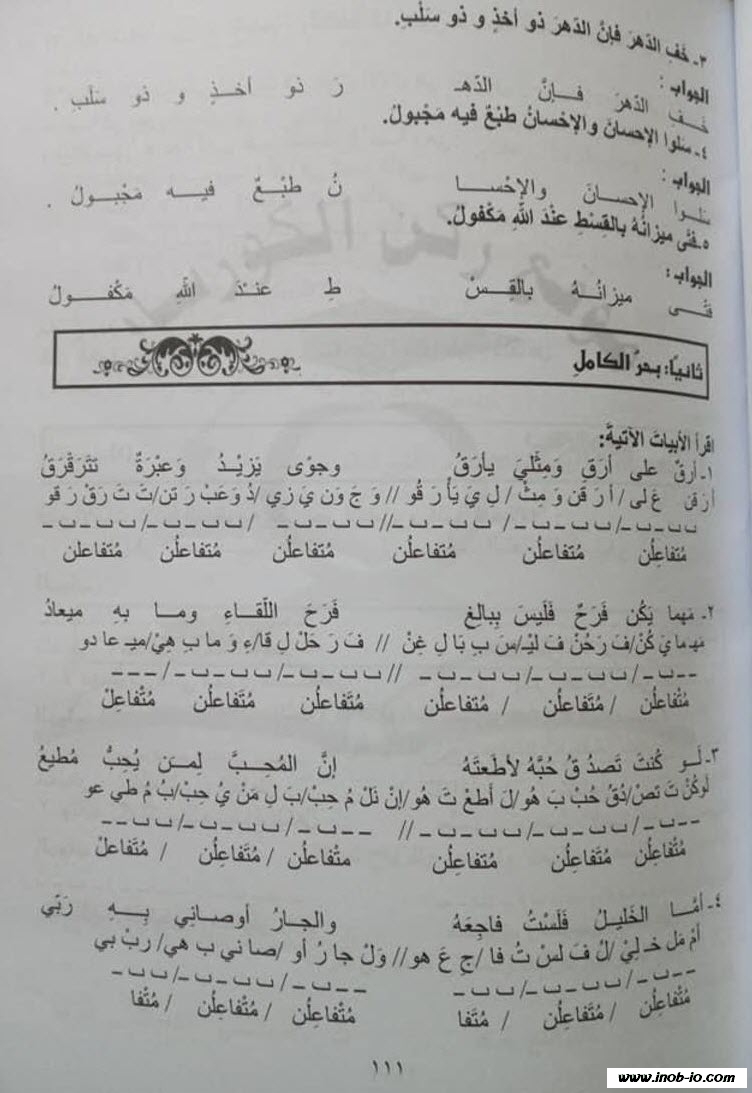 ٣- خَفِ الدّهرَ فإنَّ الدّهرَ ذو أخذٍ و ذو سَلْبِ.
الجواب :
خَـفِ الدّهرَ فـإنَّ الدّهـ رَ ذو أخـذٍ و ذو سَلَبِ .
٤- سَلوا الإحسانَ والإحْسانُ طبْعٌ فيه مَجْبولُ.
الجواب :
سَلوا الإحسانَ والإحْسا نُ طبْعٌ فيه مَجْبولُ .
٥- فتًى ميزانُهُ بالقِسْطِ عنْدَ اللّهِ مَكْفولُ.
الجواب :
فتًى ميزانُـهُ بالقِـسْ طِ عنْدَ اللّهِ مَكْفولُ
ثانيًا: بحرُ الكاملِ
اقرأ الأبياتَ الآتيةَ:
١- أرقٌ على أرَقٍ وَمِثْليَ يأرَقُ وجوًى يَزيْدُ وَعبْرَةٌ تَتَرَقْرَقُ
أرَقن عَ لى/ أ رَ قن و مِثْ/ لِ يَ يَأْ رَ قو // وَ جَ وَن يَ زي /دُ وَ عَبْ رَ تن/تَ تَ رَقْ رَ قو
ب ب ـ ب ـ/ب ب ـ ب ـ/ ب ب ـ ب ـ// ب ب ـ ب ـ /ب ب ـ ب ـ/ب ب ـ ب ـ
مُتَفاعِلُن مُتَفاعلُن مُتَفاعلُن مُتَفاعِلُن مُتَفاعلُن مُتَفاعلن
٢- مَهما يَكُن فَرَحٌ فَلَيسَ بِبالِغٍ فَرَحَ اللّقاءِ وما بهِ ميعادُ
مَهـ ما يَ كُنْ/فَ رَحُنْ فَ ليْ/سَ بِ بَا لِ غِنْ // فَ رَ حَلْ لِ قا/ءِ وَ ما بِ هِيْ/ميـ عا دو
ـ ـ ب ـ/ب ب ـ ب ـ/ب ب ـ ب ـ //ب ب ـ ب ـ/ب ب ـ ب ـ/ـ ـ ـ
مُتْفاعلُن / مُتَفاعلُن / مُتَفاعلُن مُتَفاعلُن مُتَفاعلُن مُتْفاعلْ
٣- لَـو كُنتَ تَصدُقُ حُبَّهُ لأطَعتَهُ إنَّ المُحِبَّ لِمَـن يُحِبُّ مُطيعُ
لَوكُنْ تَ تَصْ/دُقُ حُبْ بَ هُو/لَ أطَعْ تَ هُو/إنْ نَلْ مُ حِبْ/بَ لِ مَنْ يُ حِبْ/بُ مُ طي عو
ـ ـ ب ـ/ب ب ـ ب ـ/ب ب ـ ب ـ // ـ ـ ب ـ/ب ب ـ ب ـ/ب ب ـ ـ
مُتْفاعلُن مُتَفاعلُن مُتَفاعِلُن متْفاعلُن / مُتَفاعلُن / مُتَفاعلْ
٤- أمّـا الخَليلُ فَلَسْتُ فاجِعَهُ والجارُ أوصاني بِـهِ رَبّي
أمْ مَل خَـ ليْ/لُ فَ لَسْ تُ فا /جِ عَ هو// وَلْ جا رُ أو /صا ني بِ هي/ ربْ بي
ـ ـ ب ـ/ب ب ـ ب ـ/ب ب ـ ـ ـ ب ـ/ب ب ـ ب ـ/ب ب ـ
مُتْفاعِلُن / مُتَفاعلُن / مُتَفا مُتْفاعلُن / مُتْفاعلُن / مُتْفا
١١١
www.inob-io.com